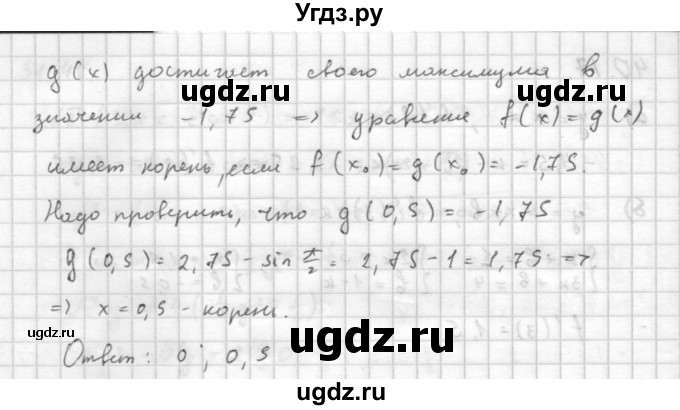 Угдз.ру
g(x) достигает своего максимума в
значении -1,75 => уравнение f(x)=g(x)
имеет корень, если f(x₀)=g(x₀)=-1,75.
Надо проверить, что g(0,5)=-1,75
g(0,5)=2,75-sin π/2 = 2,75-1=1,75 =>
=> x=0,5 - корень.
Ответ: 0; 0,5
ugdz.ru
ugdz.ru
ugdz.ru
ugdz.ru
ugdz.ru
ugdz.ru